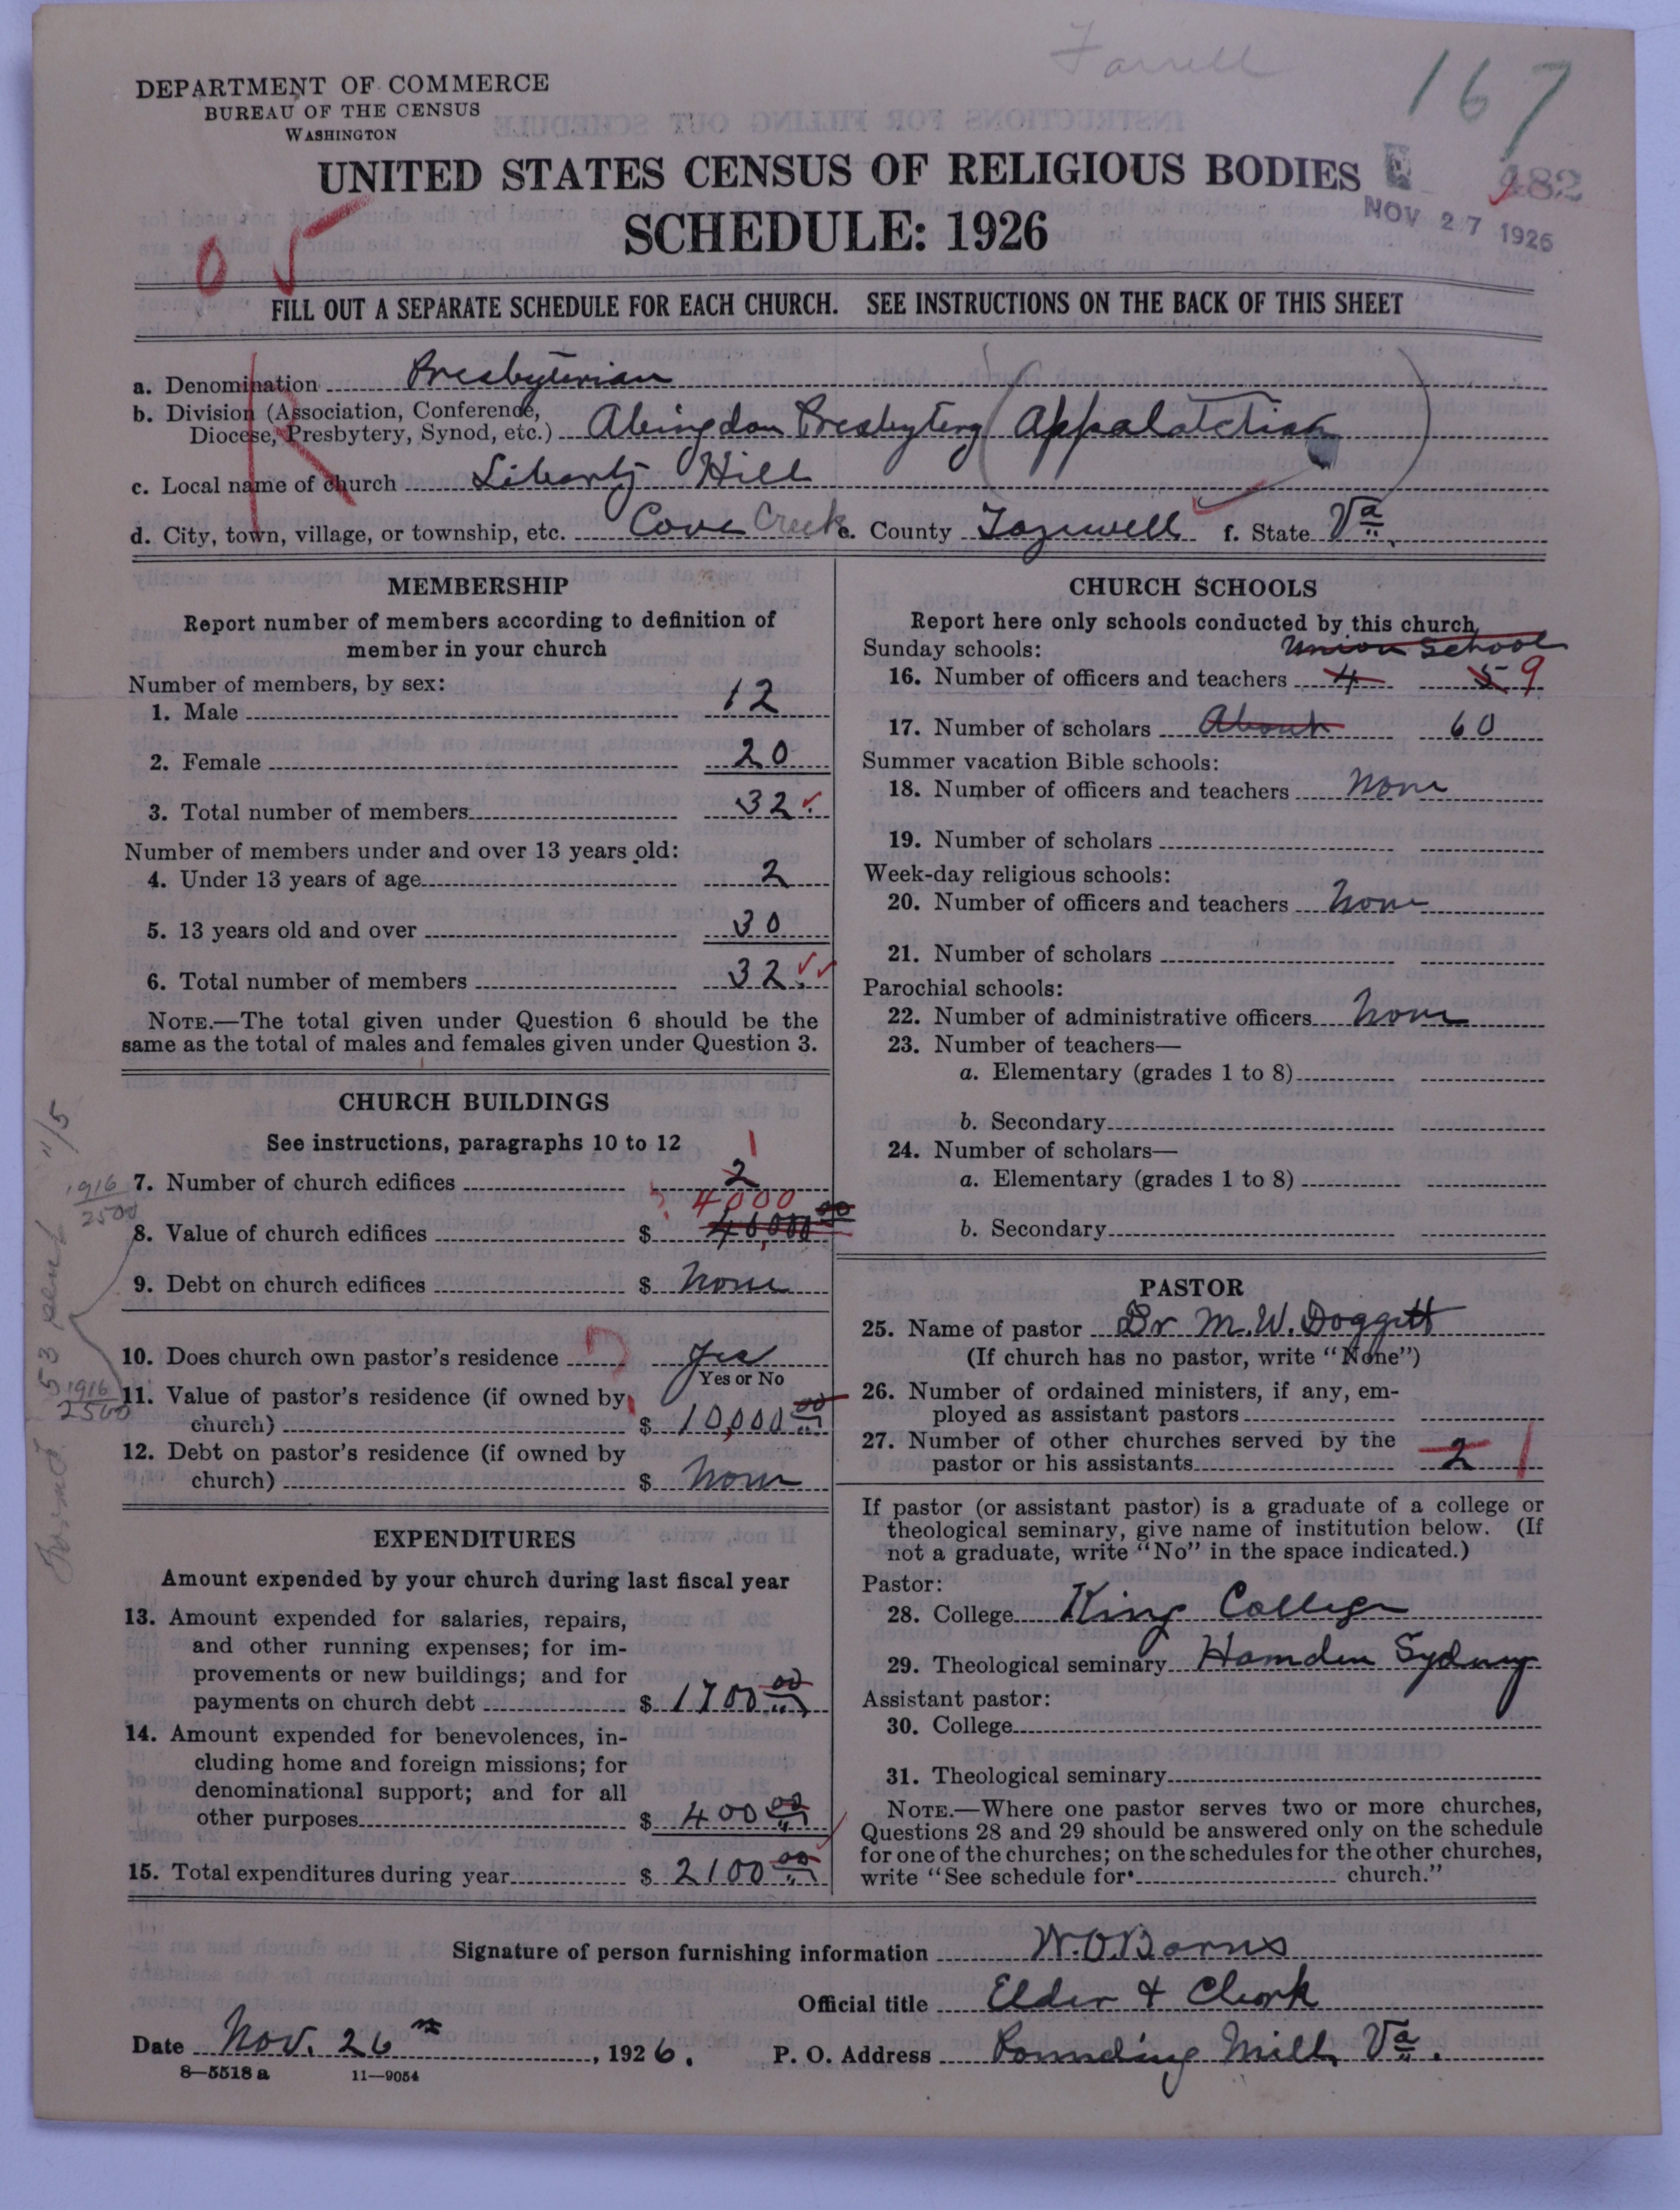 Farrell
167
DEPARTMENT OF COMMERCE
BUREAU OF THE CENSUS
WASHINGTON
UNITED STATES CENSUS OF RELIGIOUS BODIES
482
SCHEDULE: 1926
NOV 27 1926
FILL OUT A SEPARATE SCHEDULE FOR EACH CHURCH. SEE INSTRUCTIONS ON THE BACK OF THIS SHEET
a. Denomination Presbyterian
b. Division (Association, Conference,
Diocese, Presbytery, Synod, etc.) Abingdon Presbytery (Appalatchian)
c. Local name of church Liberty Hill
d. City, town, village, or township, etc. Cove Creek e. County Tazewell f. State Va.
MEMBERSHIP
Report number of members according to definition of
member in your church
Number of members, by sex:
1. Male 12
2. Female 20
3. Total number of members 32
Number of members under and over 13 years old:
4. Under 13 years of age 2
5. 13 years old and over 30
6. Total number of members 32
NOTE.—The total given under Question 6 should be the
same as the total of males and females given under Question 3.
CHURCH BUILDINGS
See instructions, paragraphs 10 to 12
1
7. Number of church edifices 2
4000
1916
2500
8. Value of church edifices $ 40,000 00
9. Debt on church edifices $ None
10. Does church own pastor's residence Yes
Yes or No
1916
2500
11. Value of pastor's residence (if owned by
church) $ 10,000 00
12. Debt on pastor's residence (if owned by
church) $ None
EXPENDITURES
Amount expended by your church during last fiscal year
13. Amount expended for salaries, repairs,
and other running expenses; for im-
provements or new buildings; and for
payments on church debt $ 1700 00
14. Amount expended for benevolences, in-
cluding home and foreign missions; for
denominational support; and for all
other purposes $ 400 00
15. Total expenditures during year $ 2100 00
CHURCH SCHOOLS
Report here only schools conducted by this church
Sunday schools: Union School
16. Number of officers and teachers 4 5 9
17. Number of scholars About 60
Summer vacation Bible schools:
18. Number of officers and teachers None
19. Number of scholars
Week-day religious schools:
20. Number of officers and teachers None
21. Number of scholars
Parochial schools:
22. Number of administrative officers None
23. Number of teachers—
a. Elementary (grades 1 to 8)
b. Secondary
24. Number of scholars—
a. Elementary (grades 1 to 8)
b. Secondary
PASTOR
25. Name of pastor Dr M. W. Doggett
(If church has no pastor, write "None")
26. Number of ordained ministers, if any, em-
ployed as assistant pastors
27. Number of other churches served by the
pastor or his assistants 2 1
If pastor (or assistant pastor) is a graduate of a college or
theological seminary, give name of institution below. (If
not a graduate, write "No" in the space indicated.)
Pastor:
28. College King College
29. Theological seminary Hamden Sydney
Assistant pastor:
30. College
31. Theological seminary
NOTE.—Where one pastor serves two or more churches,
Questions 28 and 29 should be answered only on the schedule
for one of the churches; on the schedules for the other churches,
write "See schedule for church."
Signature of person furnishing information W. O. Barns
Official title Elder & Clerk
Date Nov. 26th, 1926. P. O. Address Pounding Mill, Va.
8—5518 a 11—9054